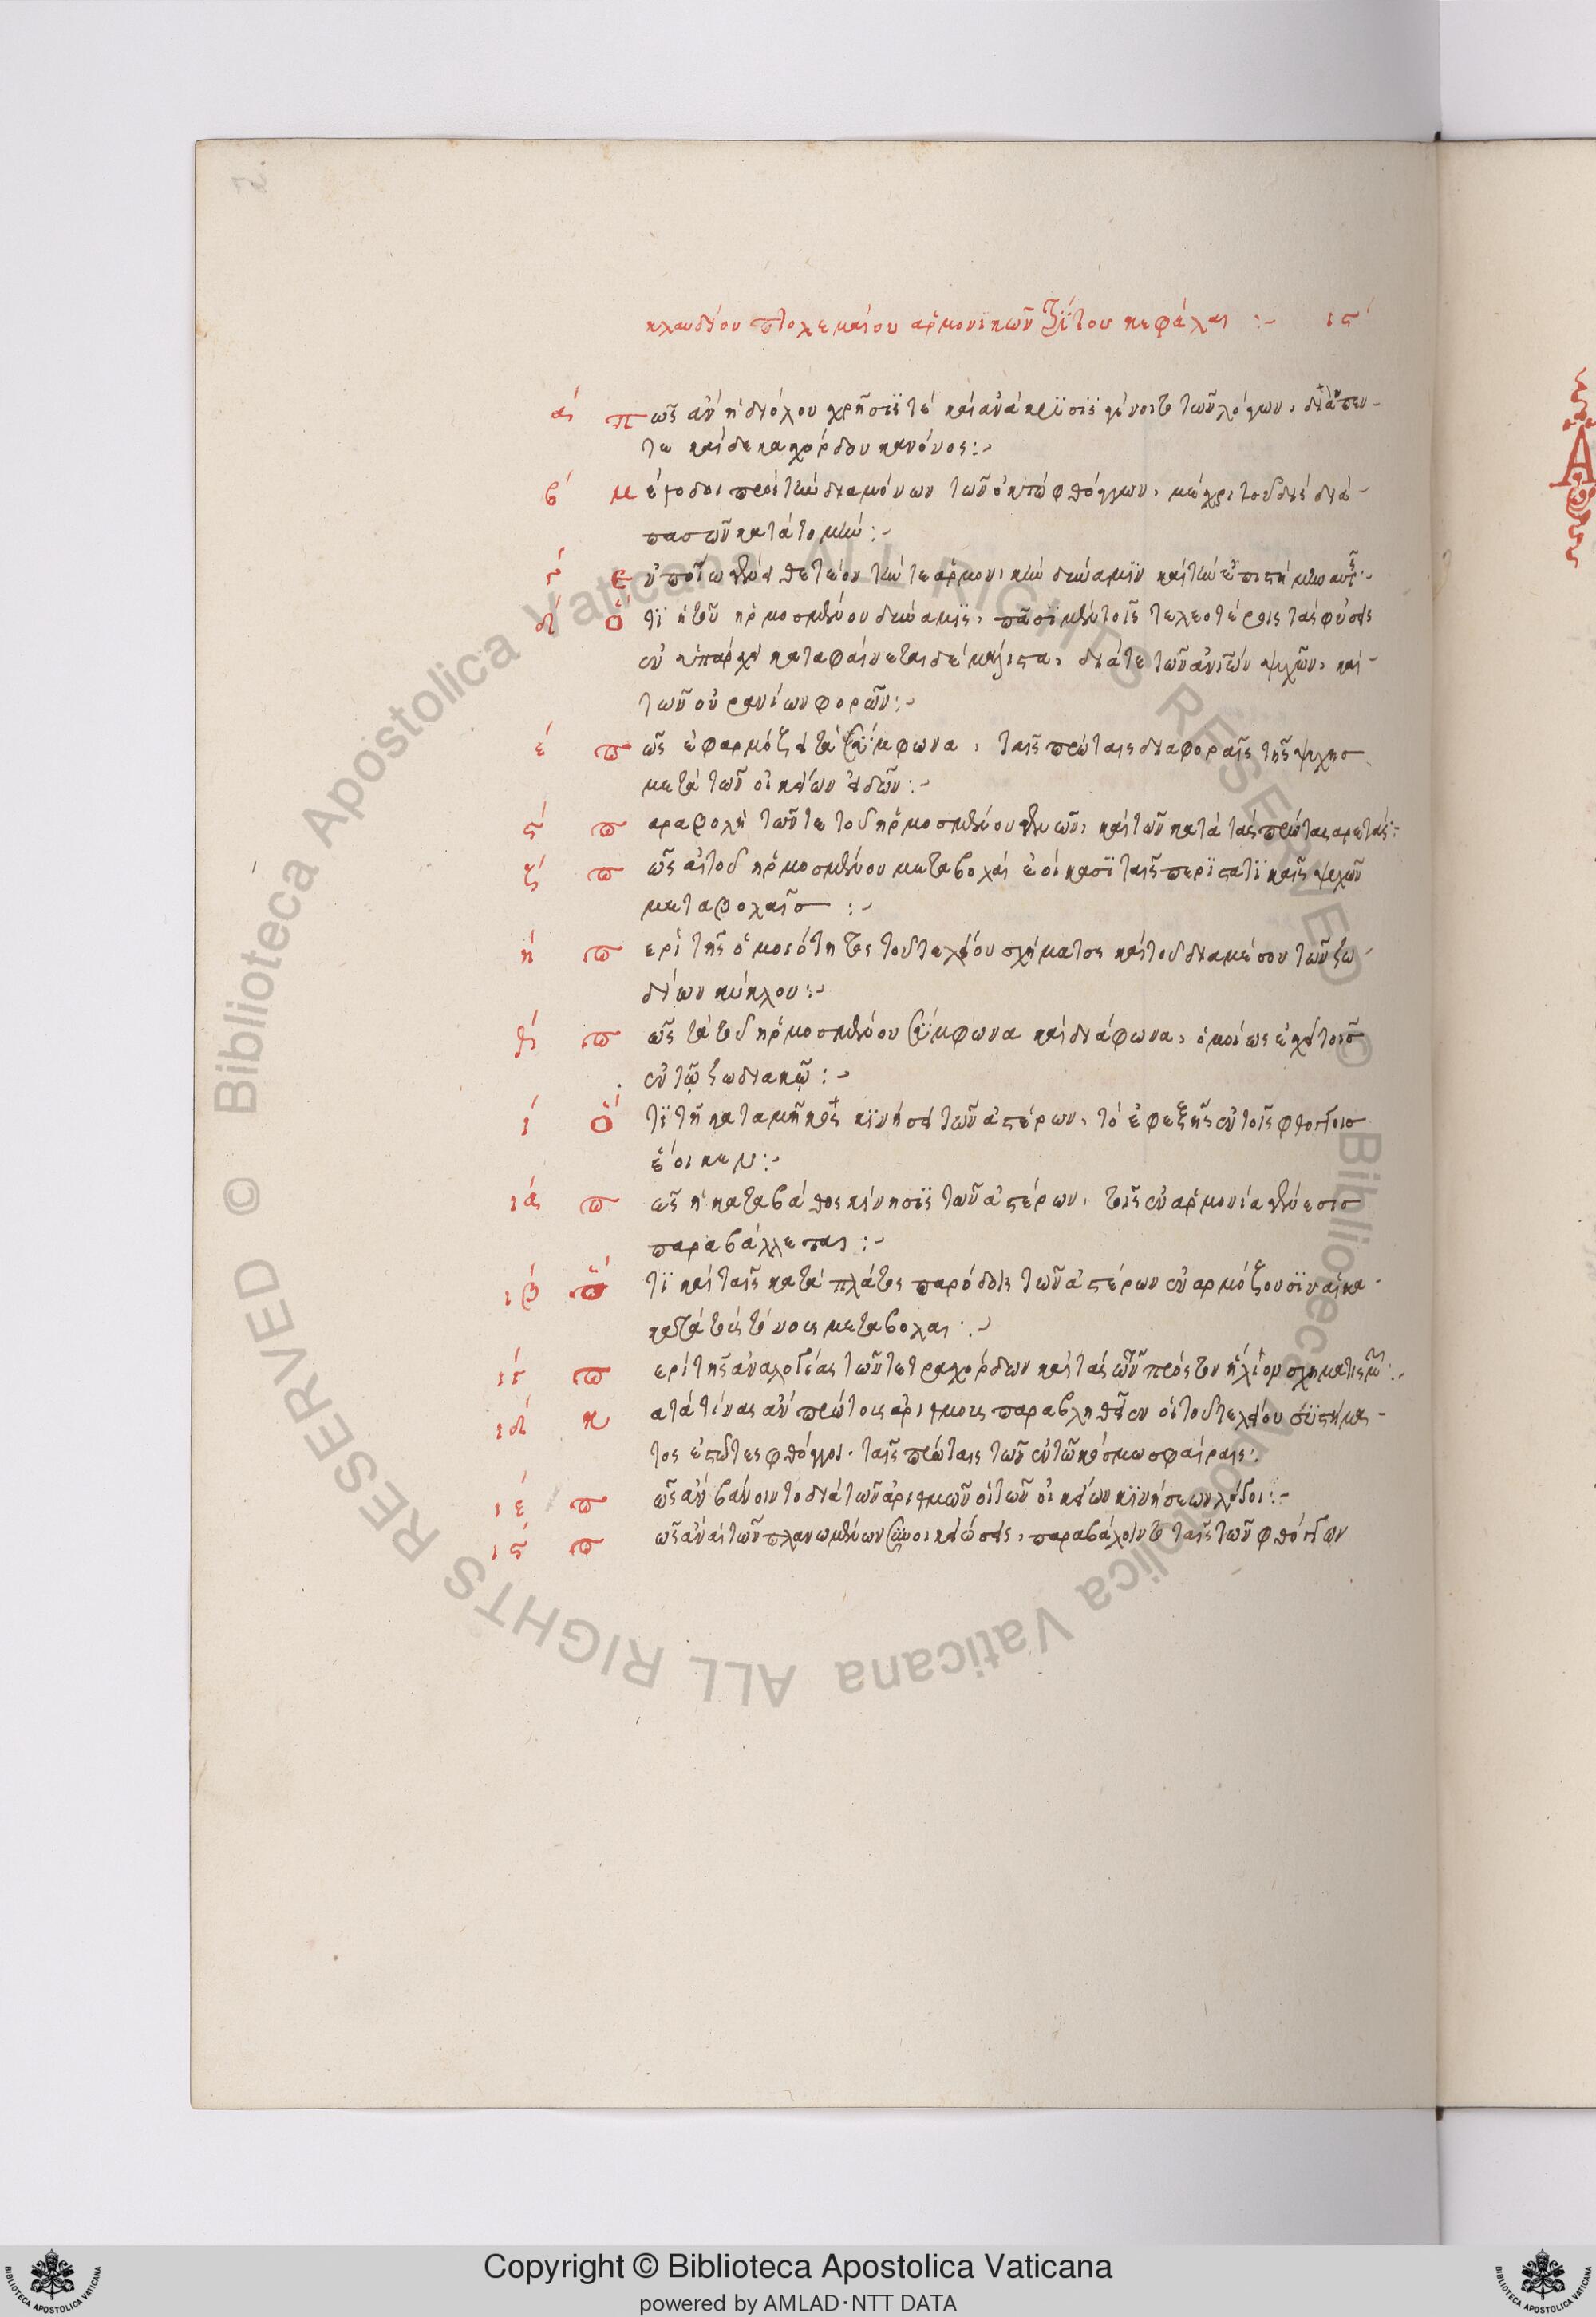 κλαυδίου πτολεμαίου ἁρμονϊκῶν τρίτου κεφάλαι :~ ις´
ά Πῶς ἂν ἡ δι' ὅλου χρῆσίς τε καὶ ἀνάκρϊσϊς γένοιτο τῶν λόγων, διὰ πεν-
τε καὶ δεκαχόρδου κανόνος :~
β´ Μέθοδοι πρὸς τὴν διαμόνων τῶν ὀκτὼ φθόγγων, μέχρι τοῦ δὶς διὰ
πασῶν κατατομήν :~
γ´ Ἐν ποίῳ γένει θετέον τήν τε ἁρμονικὴν δύναμϊν καὶ τὴν ἐπιστήμην αὐτῆς :~
δ´ Ὅτϊ ἡ τοῦ ἡρμοσμένου δύναμϊς, πᾶσϊ μὲν τοῖς τελεοτέροις τὰς φύσεις
ἐνυπάρχει καταφαίνεται δὲ μάλιστα, διά τε τῶν ἀν͞ων ψυχῶν, καὶ
τῶν οὐρανίων φορῶν :~
έ Πῶς ἐφαρμόζει τὰ σύμφωνα, ταῖς πρώταις διαφοραῖς τῆς ψυχῆς
μετὰ τῶν οἰκείων εἰδῶν :~
ς´ Παραβολὴ τῶν τε τοῦ ἡρμοσμένου γενῶν, καὶ τῶν κατὰ τὰς πρώτας ἀρετάς :~
ζ´ Πῶς αἱ τοῦ ἡρμοσμένου μεταβολαὶ ἐοίκασϊ ταῖς περϊστατϊκαῖς ψυχῶν
μεταβολαῖς :~
ή Περὶ τῆς ὁμοιότητος τοῦ τελείου σχήματος καὶ τοῦ διαμέσου τῶν ζω-
δίων κύκλου :~
θ´ Πῶς τὰ τοῦ ἡρμοσμένου σύμφωνα καὶ διάφωνα, ὁμοίως ἔχει τοῖς
ἐν τῷ ζωδιακῷ :~
ί Ὅτϊ τῆ κατὰ μῆκος κϊνήσει τῶν ἀστέρων, τὸ ἐφεξῆς ἐν τοῖς φθόγγοις
ἔοικεν :~
ιά Πῶς ἡ κατὰ βάθος κίνησϊς τῶν ἀστέρων, τοῖς ἐν ἁρμονία γένεσις
παραβάλλεται :~
ιβ´ Ὅτϊ καὶ ταῖς κατὰ πλάτος παρόδοις τῶν ἀστέρων ἐναρμόζουσϊν αἱ κα-
κατὰ τοὺς τόνους μεταβολαι :~
ιγ´ Περὶ τῆς ἀναλογίας τῶν τετραχόρδων καὶ τὰς τῶν πρὸς τὸν ἥλιον σχηματισμῶν :~
ιδ´ Κατὰ τίνας ἂν πρώτους ἀριθμοὺς παραβληθεῖεν οἱ τοῦ τελείου συστήμα-
τος ἑστῶτες φθόγγοι· ταῖς πρώταις τῶν ἐν τῶ κόσμω σφαίραις :
ιέ Πῶς ἂν λαμβάνοιντο διὰ τῶν ἀριθμῶν οἱ τῶν οἰκείων κϊνήσεων λόγοι :~
ις´ Πῶς ἂν αἱ τῶν πλανωμένων συνοικειώσεις, παραβάλοιντο ταῖς τῶν φθόγγων
Copyright © Biblioteca Apostolica Vaticana
powered by AMLAD·NTT DATA